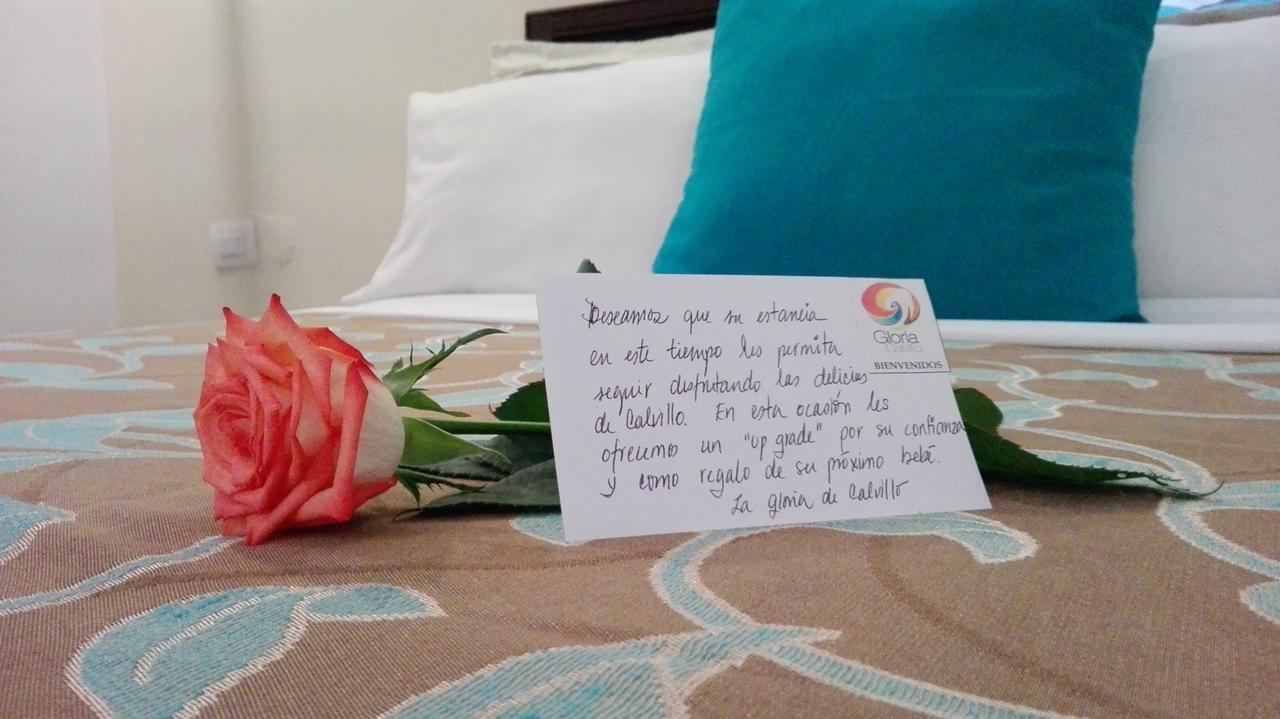 Deseamos que su estancia
en este tiempo les permita
seguir disfrutando las delicias
de Calvillo. En esta ocasión les
ofrecemos un "up grade" por su confianza
y como regalo de su próximo bebé.
La gloria de Calvillo
Gloria
Calvillo
BIENVENIDOS